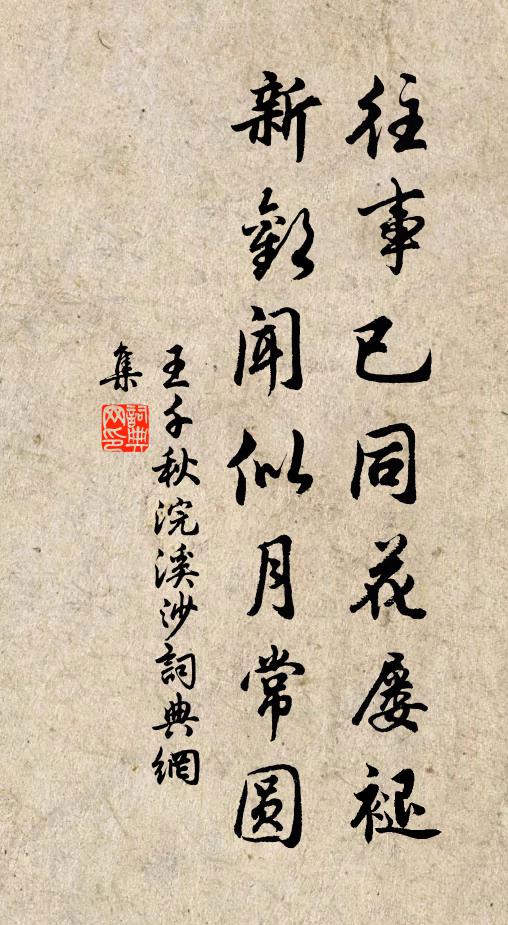 往事已同花屡褪
新歡闻似月常圆
王千秋浣溪沙詞典網
集
詞典網印